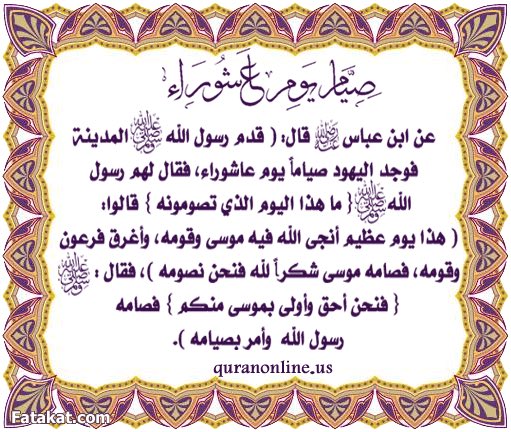 صِيَامُ يَوْمِ عَاشُورَاءِ
عن ابن عباس ﵄ قال: ( قدم رسول الله ﷺ المدينة
فوجد اليهود صياماً يوم عاشوراء، فقال لهم رسول
الله ﷺ { ما هذا اليوم الذي تصومونه } قالوا:
( هذا يوم عظيم أنجى الله فيه موسى وقومه، وأغرق فرعون
وقومه، فصامه موسى شكراً لله فنحن نصومه )، فقال : ﷺ
{ فنحن أحق وأولى بموسى منكم } فصامه
رسول الله وأمر بصيامه ).
quranonline.us
Fatakat.com